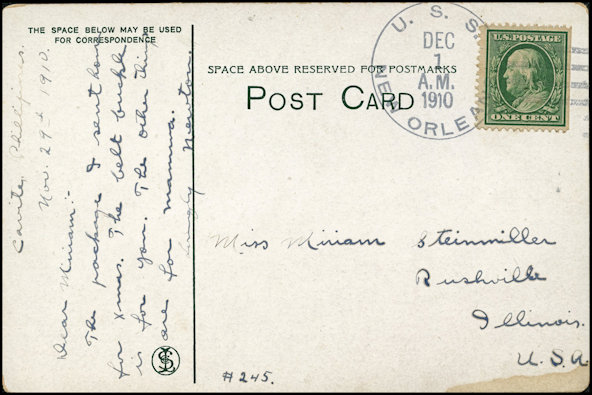 THE SPACE BELOW MAY BE USED
FOR CORRESPONDENCE
Cavite, Philipines.
Nov. 29th 1910.
Dear Miriam:-
The package I sent home
for Xmas. The belt buckle
is for you. The other things
are for mamma.
Newton.
SPACE ABOVE RESERVED FOR POSTMARKS
POST CARD
U. S. S.
NEW ORLEANS
DEC
1
A.M.
1910
U.S. POSTAGE
ONE CENT
Miss Miriam Steinmiller
Rushville
Illinois.
U.S.A.
#245.